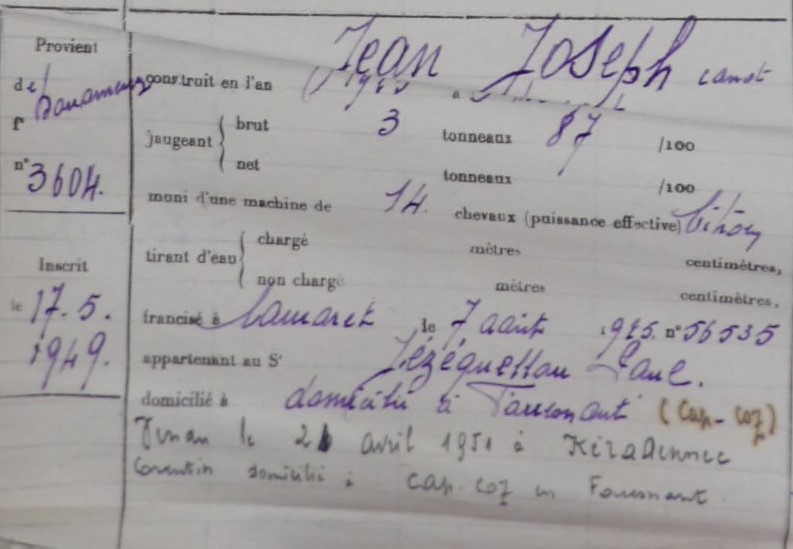 Provient
de Douarnenez
f°
n° 3604.
Inscrit
le 17.5.
1949.
Jean Joseph canot
construit en l'an à
jaugeant { brut 3 tonneaux 87 /100
net tonneaux /100
muni d'une machine de 14. chevaux (puissance effective) Citroën
tirant d'eau { chargé mètres centimètres,
non chargé mètres centimètres.
francisé à Camaret le 7 août 1925. n° 56535
appartenant au Sr Jézéquellou Paul.
domicilié à domicilié à Fouesnant (Cap-Coz)
le 26 avril 1951 à Kéradennec
Corentin domicilié à Cap Coz en Fouesnant